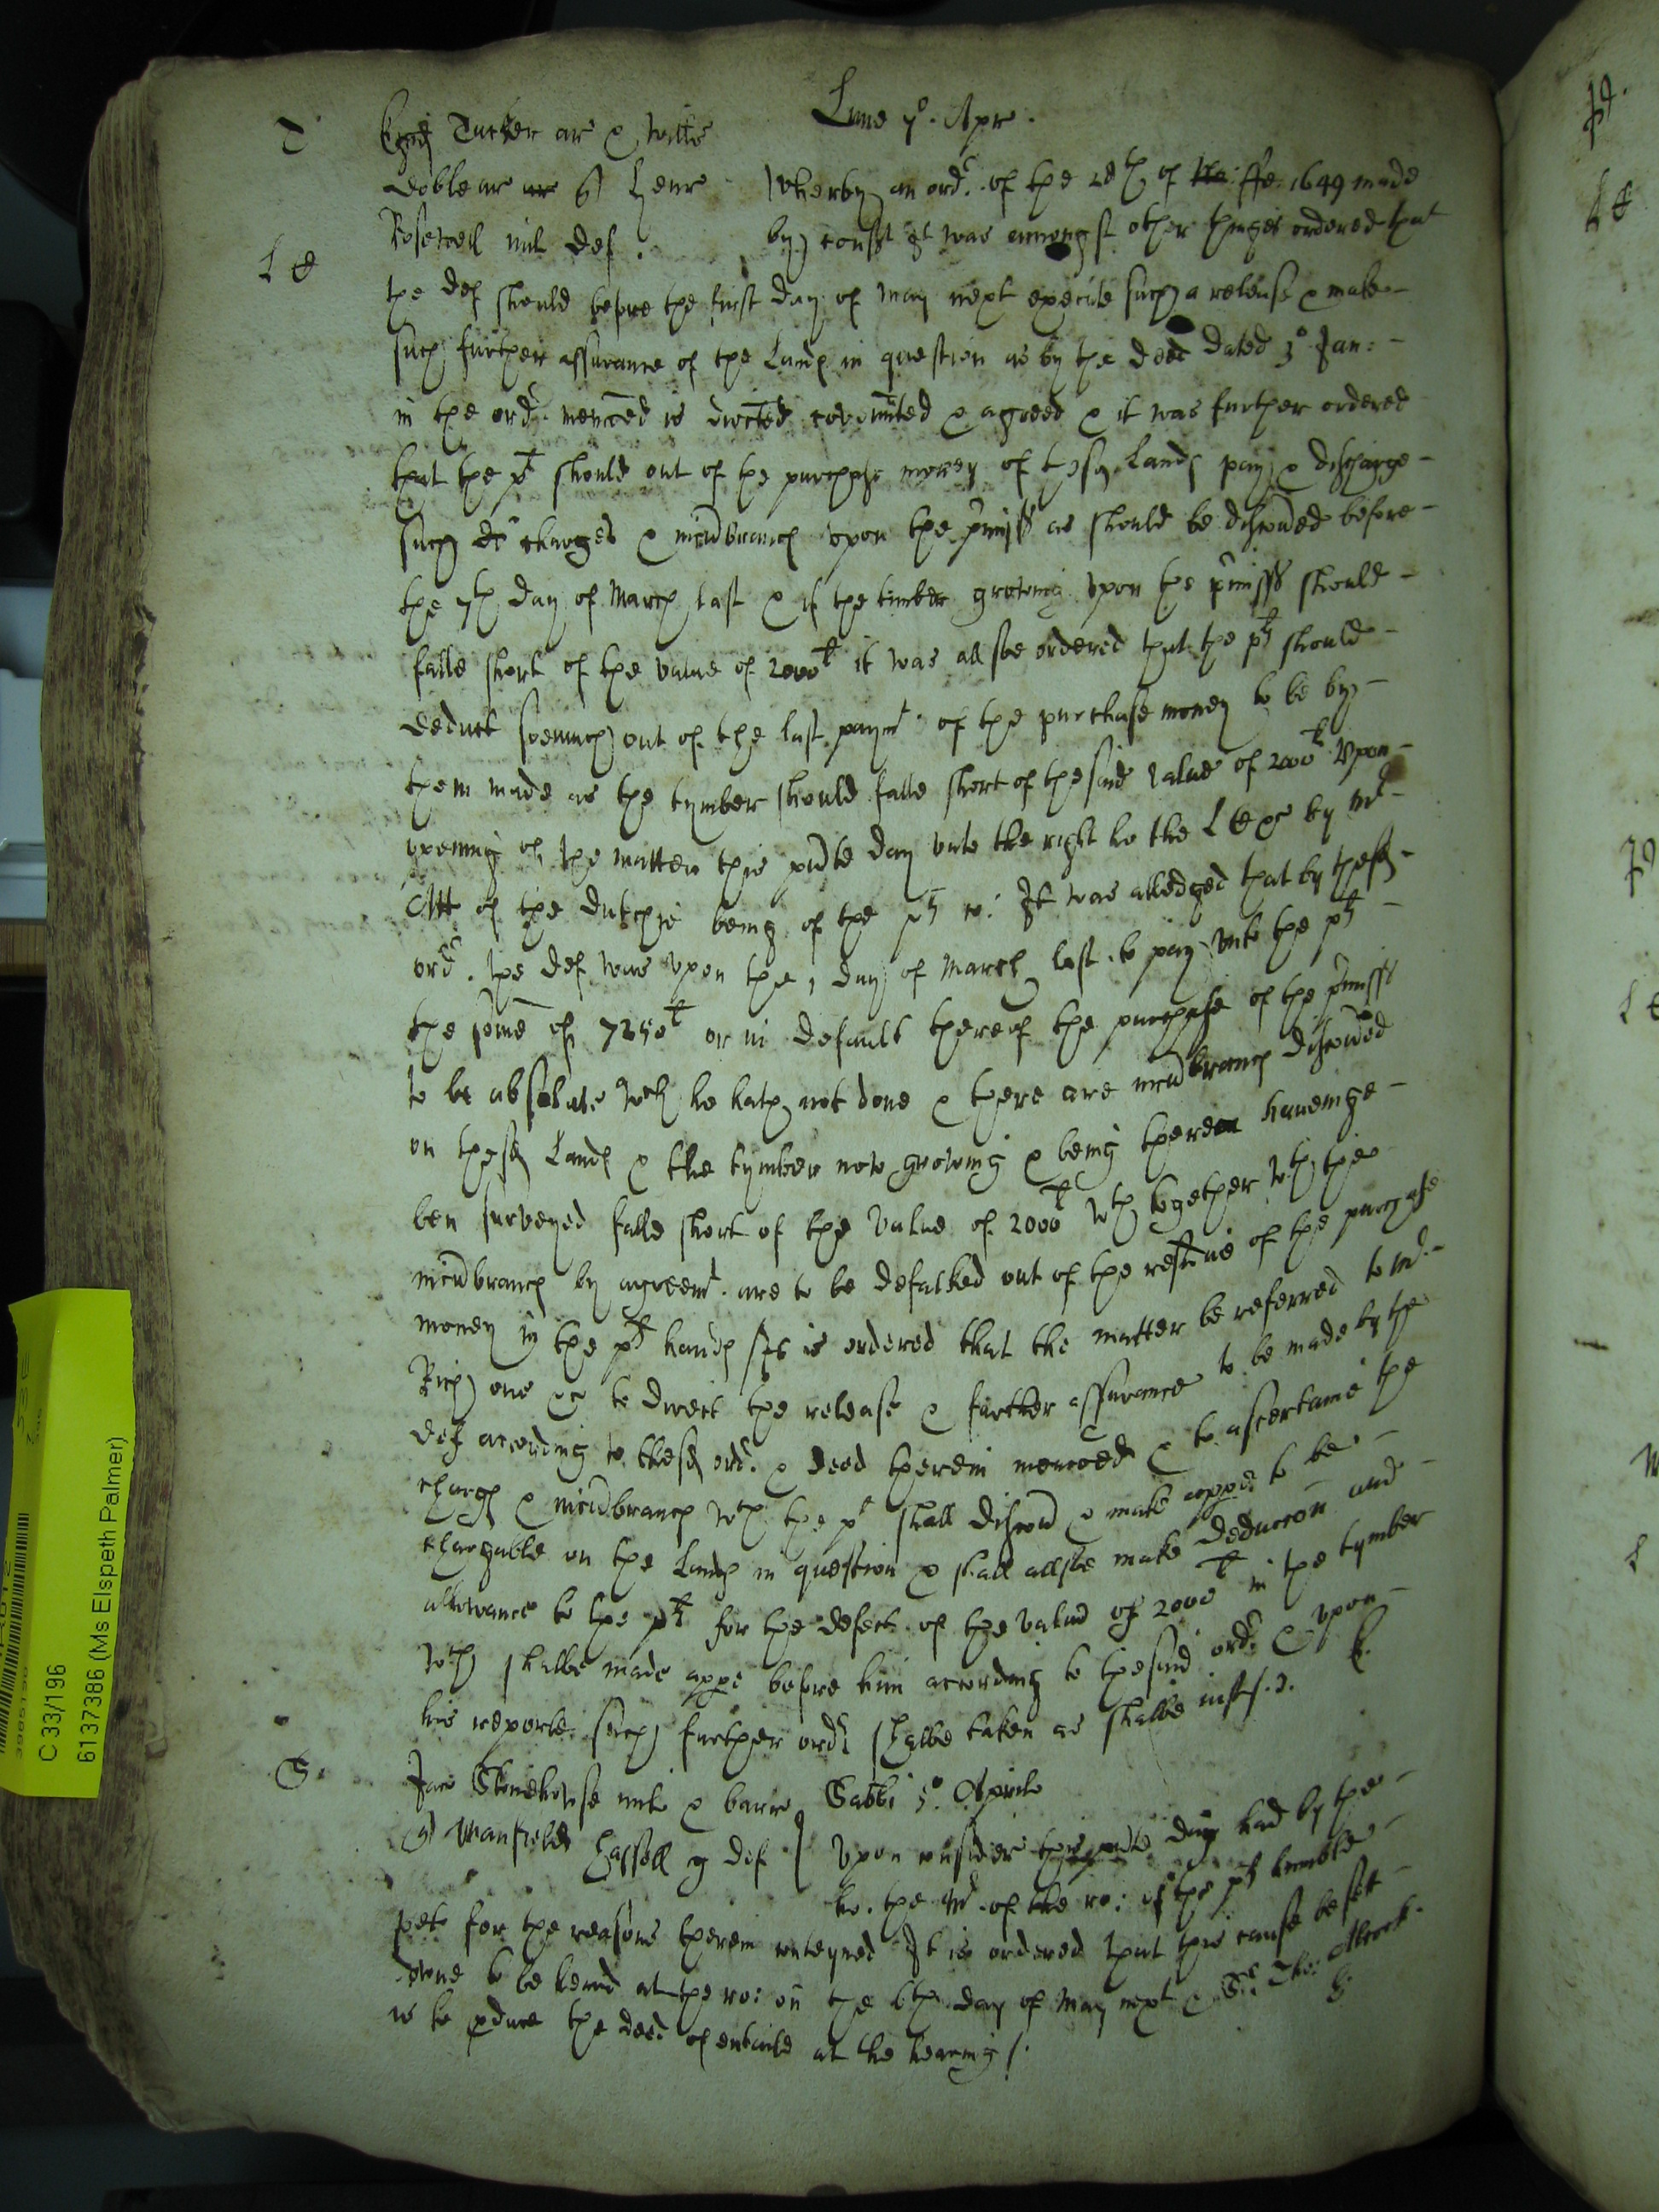 Lune 7o. Apr.
T Tucker ar & Willm
Doble ar ar Henr Wherby an ordr. of the of ffe. 1649 made
Rosewell mil def. by consent It was amongst other things ordered that
L C
the def should before the first day of May next execute such a release & make
such further assurance of the Lands in question as by the deed dated 3o Jan:
in the ordr. menconed is directed covennted & agreed & it was further ordered
that the plt should out of the purchase money of the sd Lands pay & discharge
such charges & incumbrances upon the pmisss as should be discovered before
the 7th day of March last & if the timber growing upon the pmisss should
falle short of the value of 2000l it was allsoe ordered that the plts should
deduct soemuch out of the last paymt. of the purchase money to be by
them made as the tymber should falle short of the said value of 2000l Upon
opening of the matter this pnte day unto the right ho the L C &c by Mr
Att of the Dutchie being of the pls co: It was alledged that by the sd
ordr. the def was upon the 1 day of March last to pay unto the plts
the some of 7250l or in default thereof the purchase of the pmisss
to be absolute wch he hath not done & there are incumbrances discovered
on the sd Lands & the tymber now growing & being thereon haveinge
ben surveyed falls short of the value of 2000l wch together wth the
incumbrances by agreemt. are to be defalked out of the residue of the purchase
money in the plts hands It is ordered that the matter be referred to Mr.
Rich one &c to direct the release & further assurance to be made by the
def according to the sd ordr. & deed therein menconed & to ascertaine the
charges & incumbrances wch the plt shall discover & make appe to be
chargable on the Lands in question & shall allsoe make deduccon and
allowance to the plts for the defect of the value of 2000l in the tymber
wch shalbe made appe before him according to the said ordr. & upon
his reporte such further ordr shalbe taken as shalbe just.
S. Jac Stonehouse mile & barrt Sabbi 5o. Aprilis
Manfield Hassell g def Upon consider this pnte day had by the
ho. the Mr. of the ro: of the plts humble
pet for the reasons therein conteyned It is ordered that this cause be sett
downe to be heard at the ro: on the 6th day of May next & Sr. Tho:
is to pduce the deed of entaile at the hearing.
C 33/196
6137386 (Ms Elspeth Palmer)